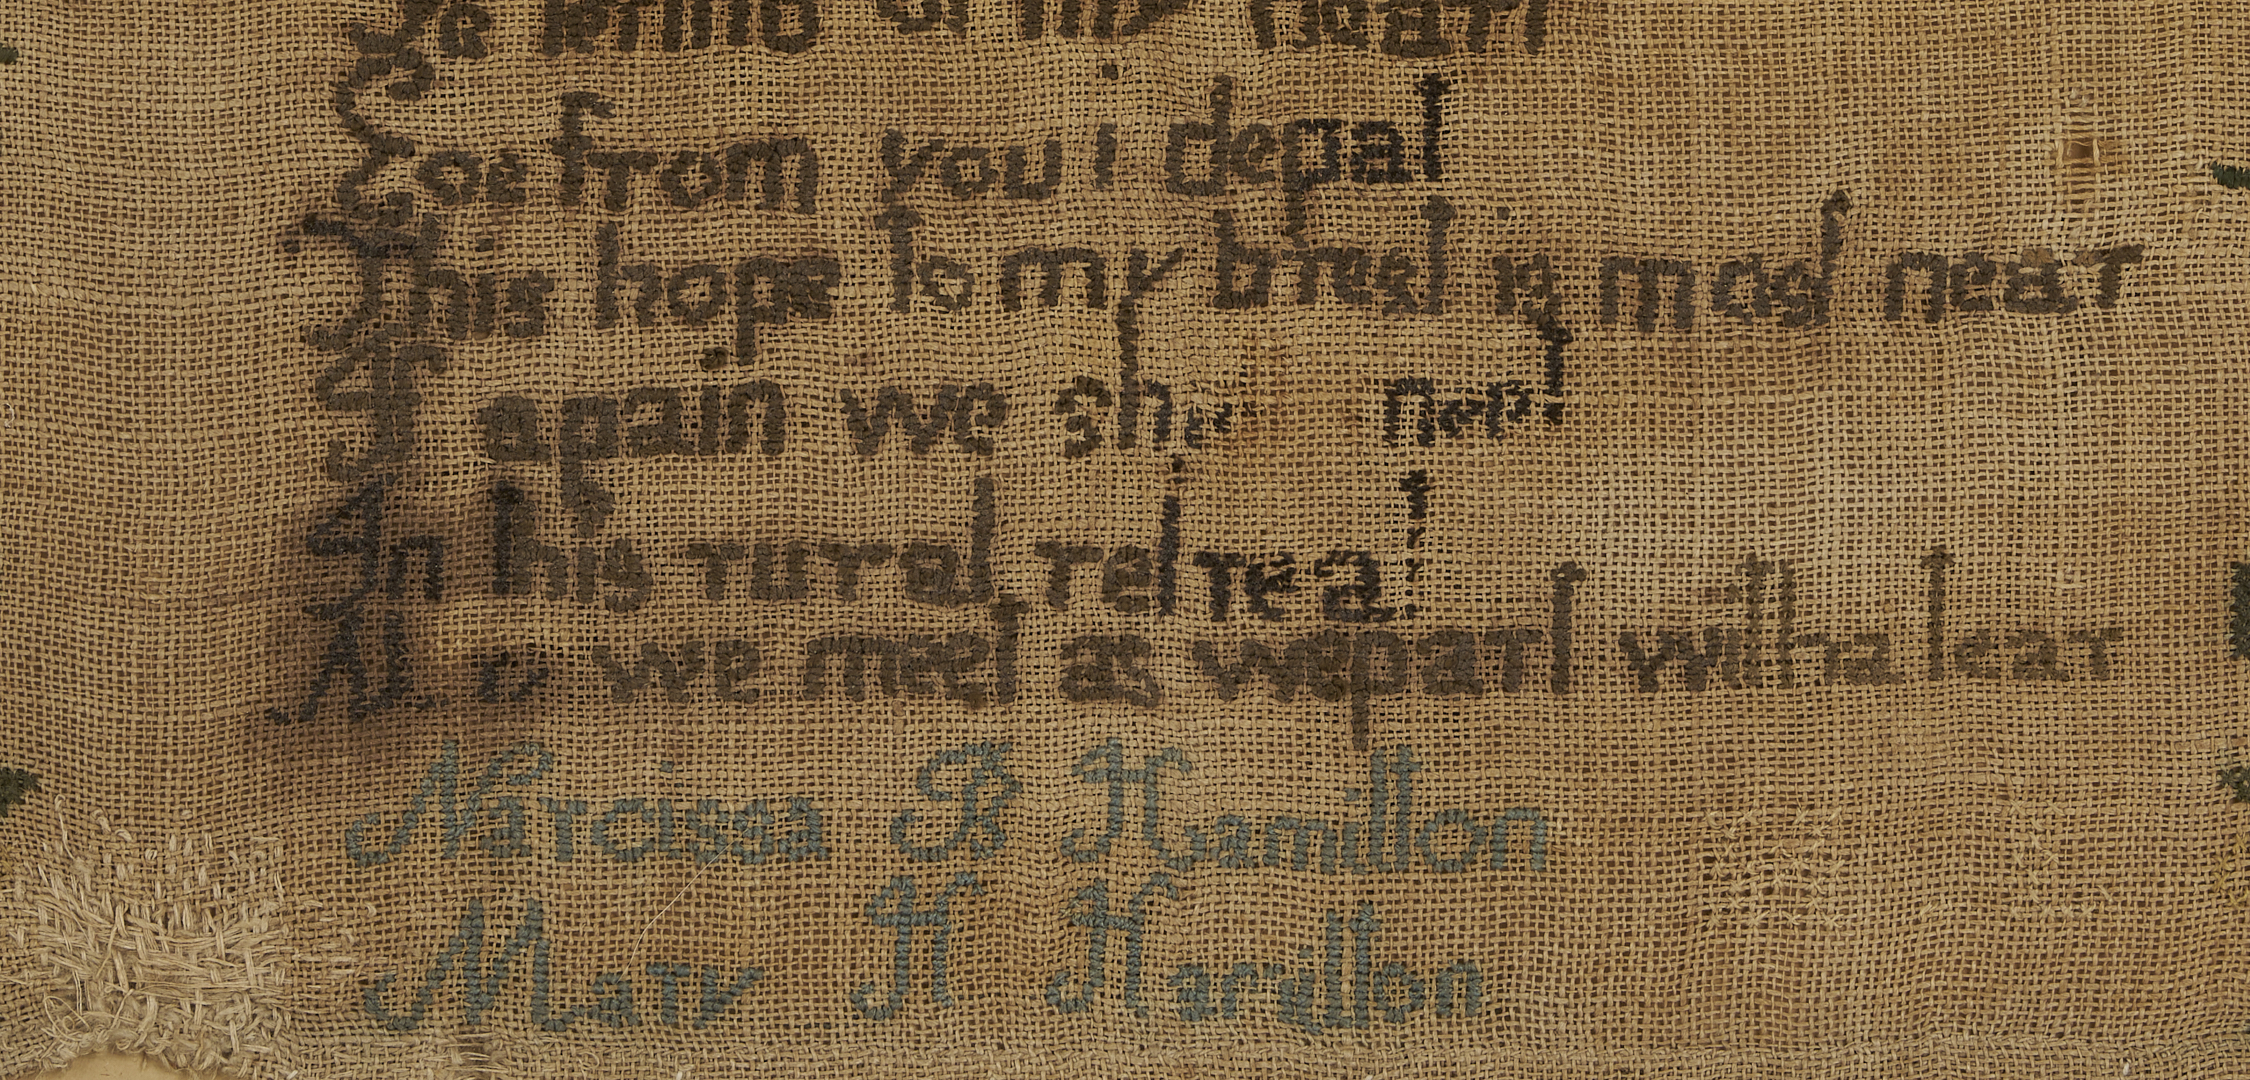 of my heart
from you i depat
This hope to my brest is most near
If again we
In this rural retreat
we meet as we part with a tear
Narcissa B Hamilton
Mary H Hamilton